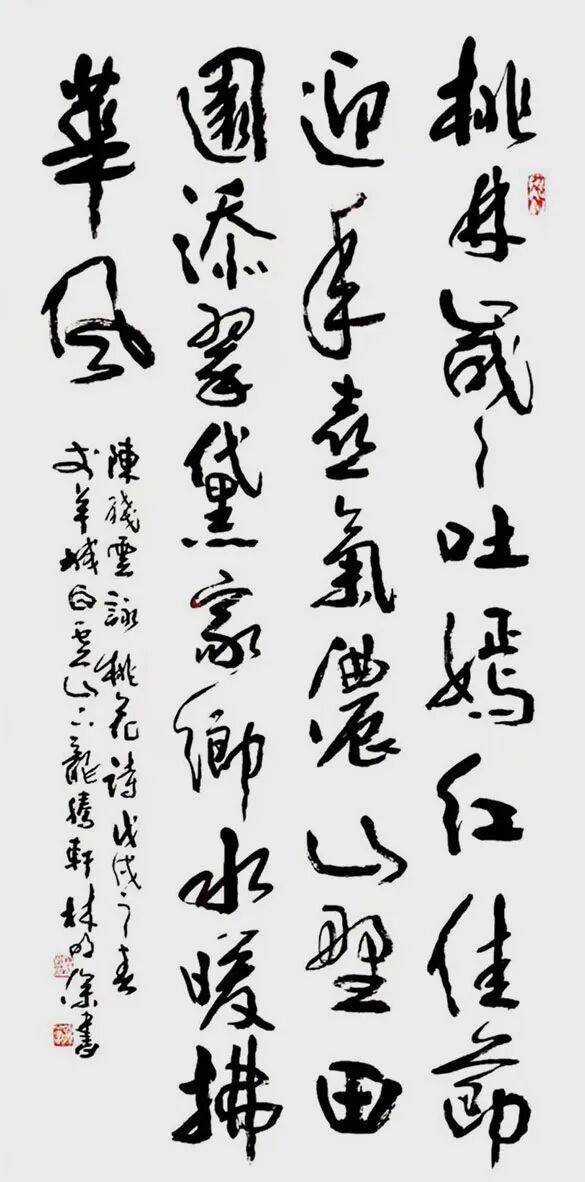 桃林歲々吐嫣红佳節
迎年喜氣濃山野田
園添翠黛家鄉水暖拂
華風
陳殘雲詠桃花詩戊戌之春
於羊城白雲山下龍騰軒林深書